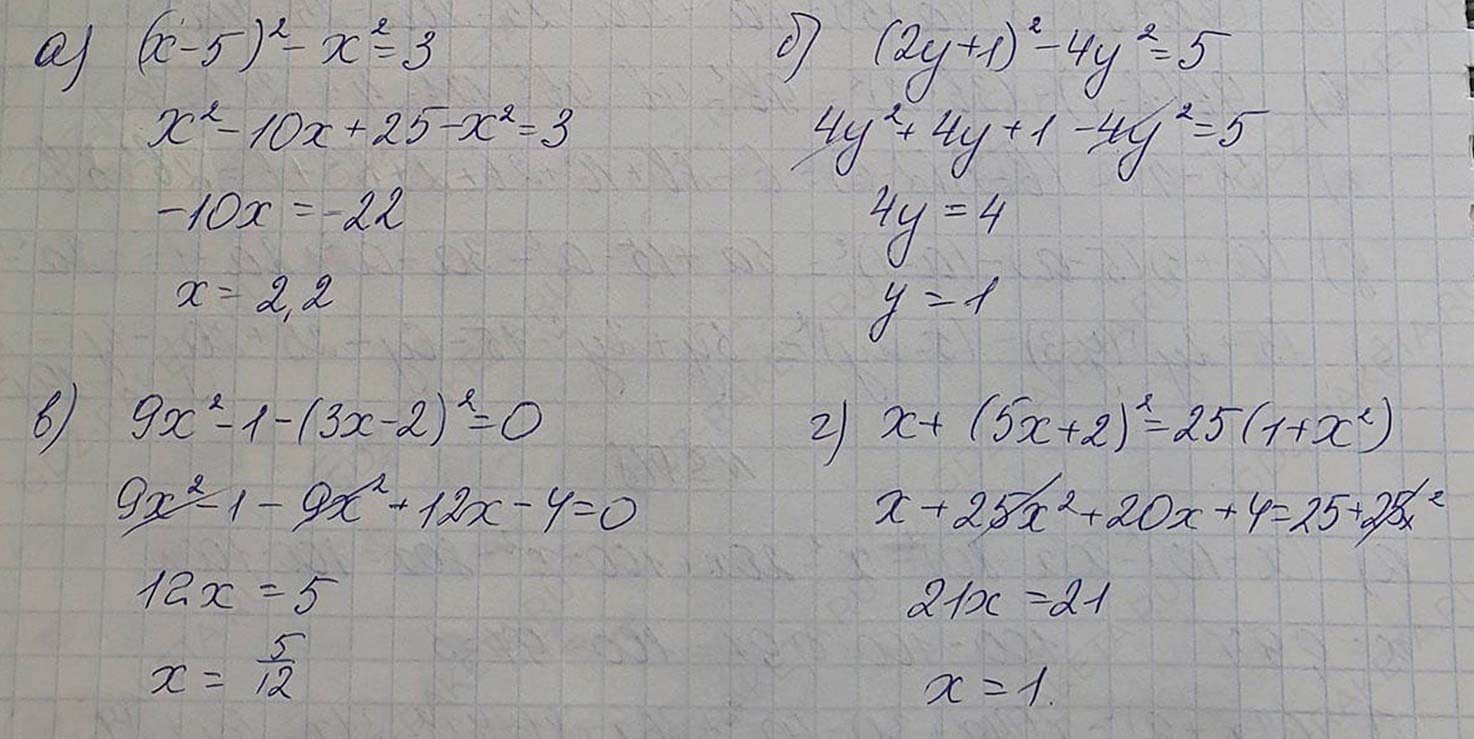 а) (x-5)² - x² = 3
x² - 10x + 25 - x² = 3
-10x = -22
x = 2,2
б) (2y+1)² - 4y² = 5
4y² + 4y + 1 - 4y² = 5
4y = 4
y = 1
в) 9x² - 1 - (3x-2)² = 0
9x² - 1 - 9x² + 12x - 4 = 0
12x = 5
x = 5/12
г) x + (5x+2)² = 25(1+x²)
x + 25x² + 20x + 4 = 25 + 25x²
21x = 21
x = 1.